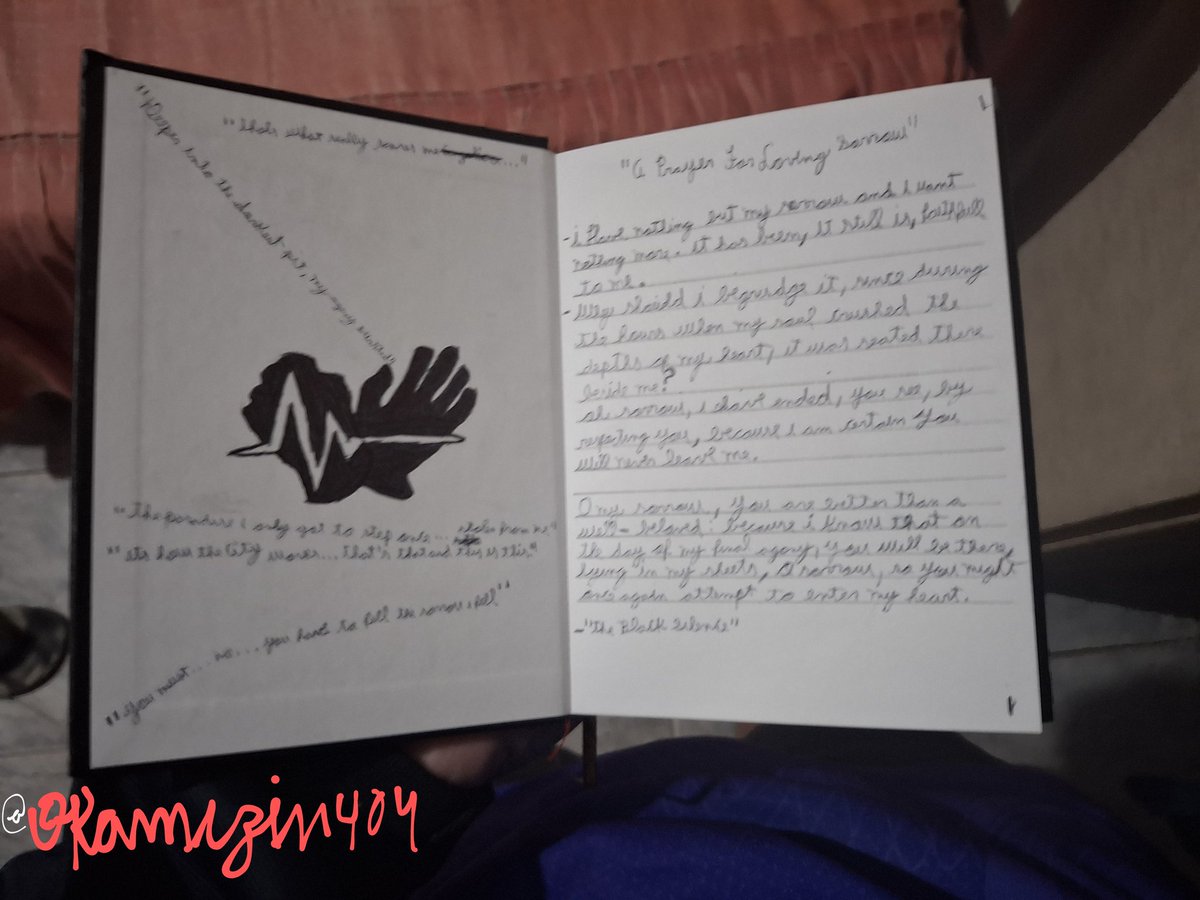 "Deeper into the darkest pit,
""thats what really scares me ..."
"the procedure i only got to step one... stolen from me"
"its how the City works... that's that and this is this."
""you must... no... you have to fell the sorrow i fell""
1
"A Prayer For Loving Sorrow"
-i Have nothing but my sorrow and i want
nothing more. it has been, it still is, faithfull
to me.
- Why should i begrudge it, since during
the hours when my soul crushed the
depths of my heart, it was seated there
beside me?
oh sorrow, i have ended, you see, by
respecting you, because i am certain you
will never leave me.
O my sorrow, you are better than a
well-beloved: because i know that on
the day of my final agony, you will be there,
lying in my sheets, O sorrow, so you might
once again attempt to enter my heart.
-"the Black Silence"
1
@OKamizin404